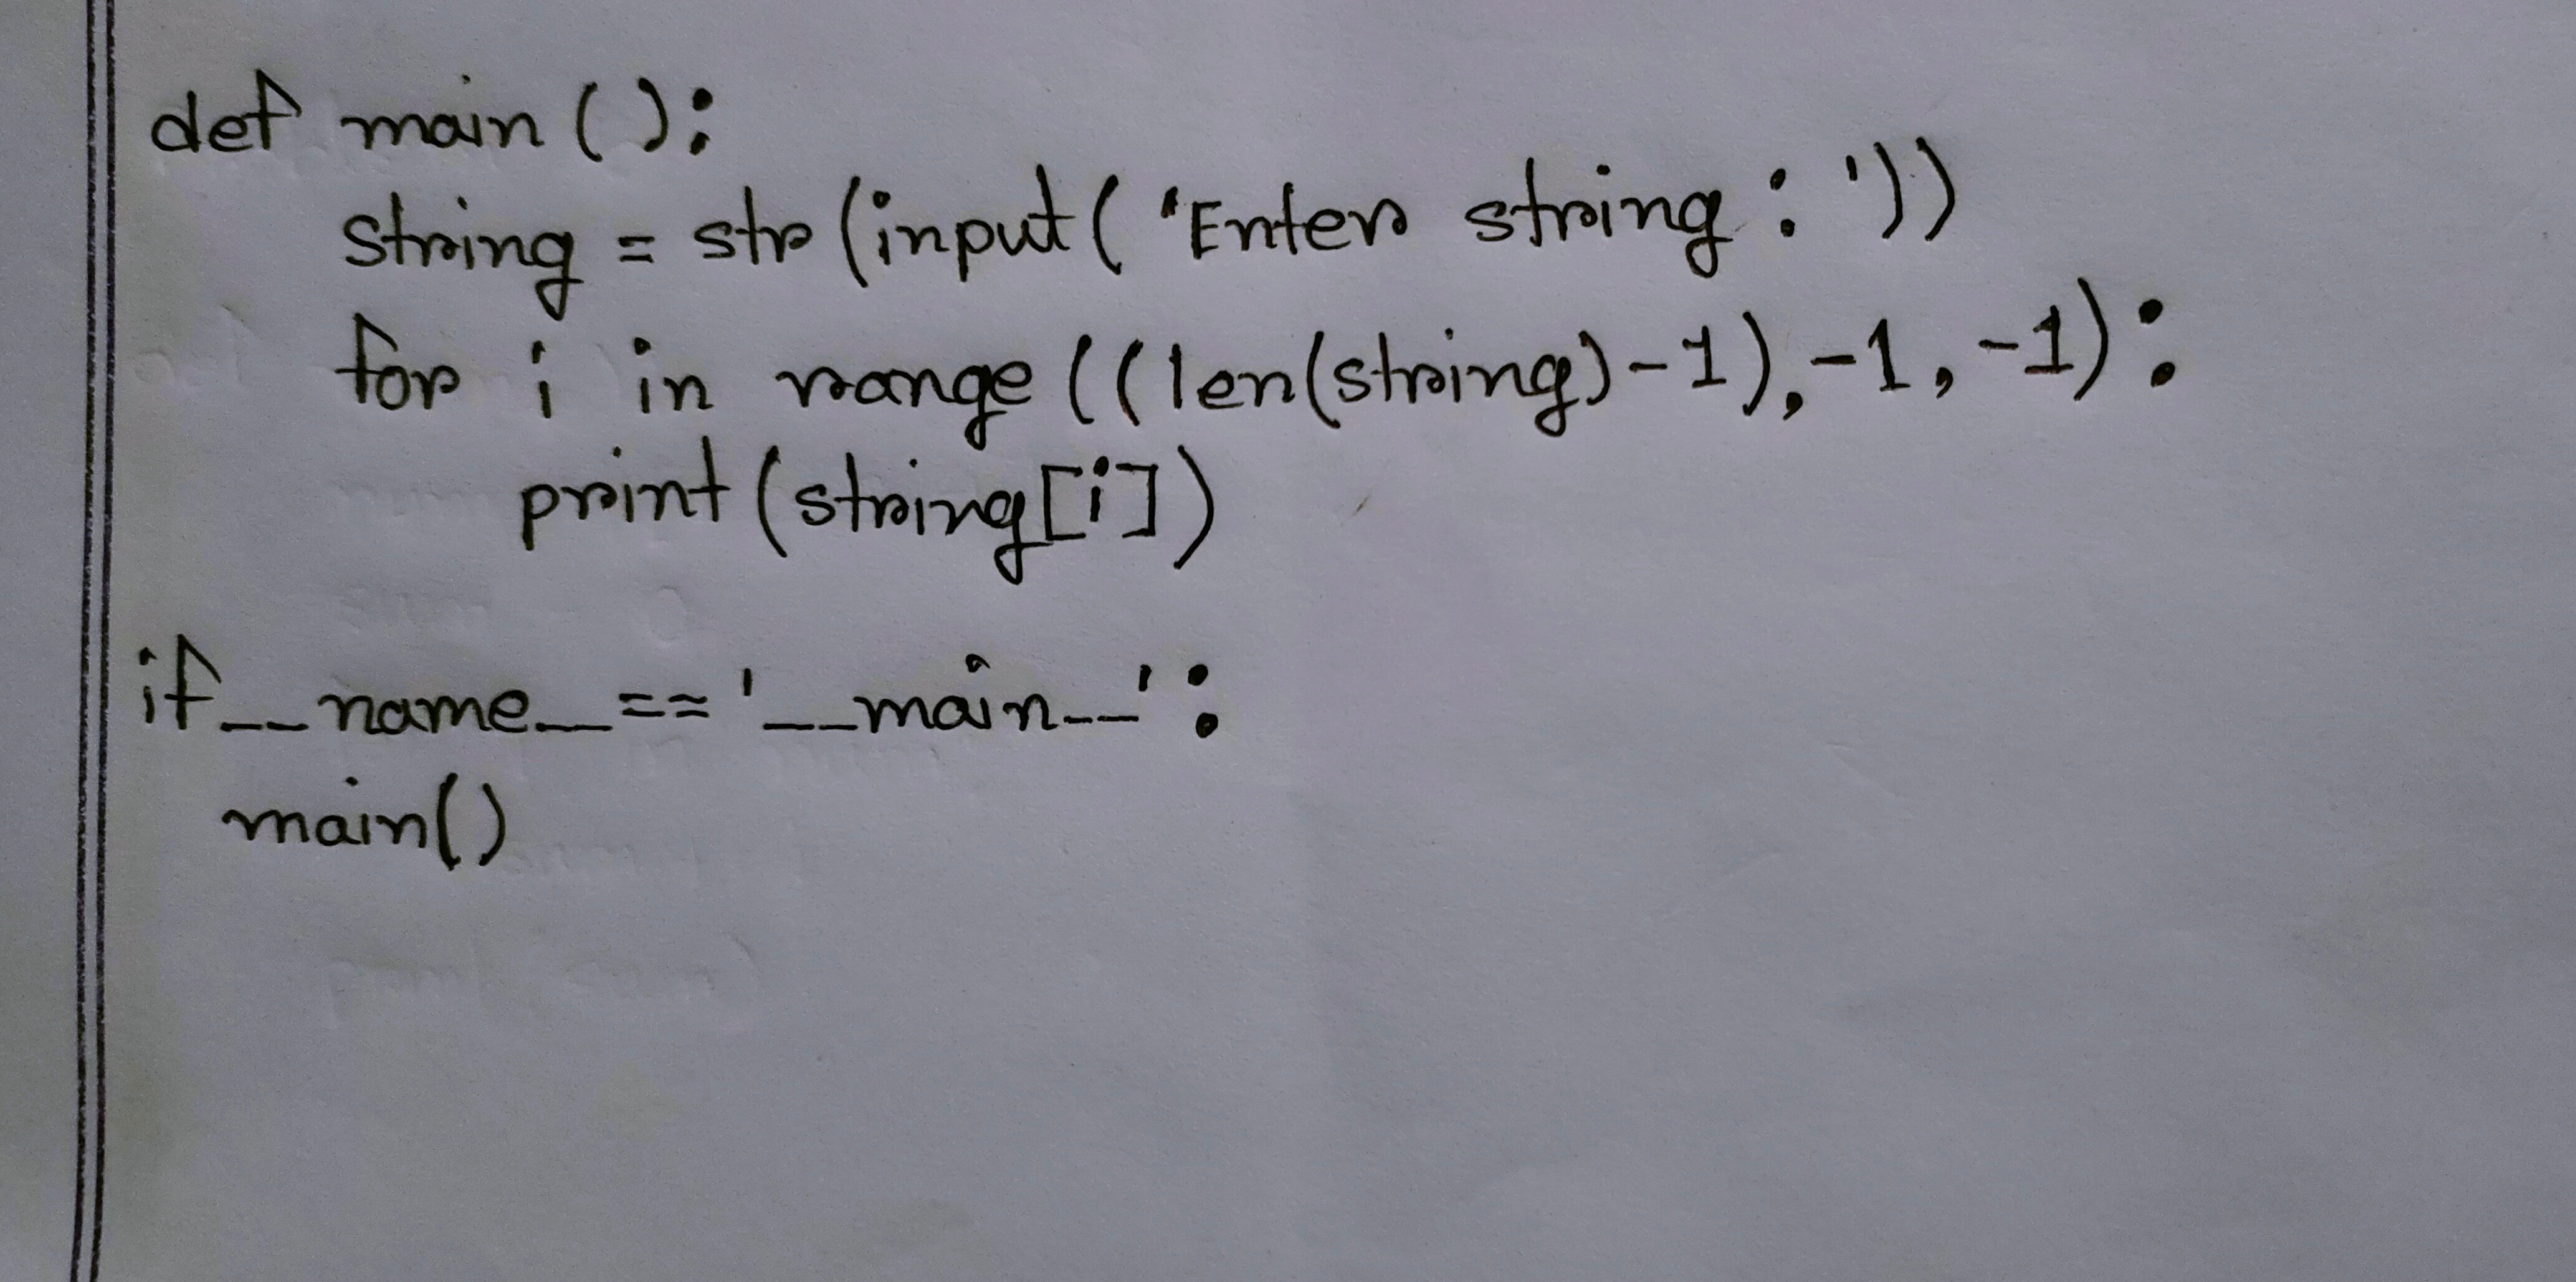 def main():
string = str(input('Enter string: '))
for i in range((len(string)-1),-1,-1):
print(string[i])
if __name__=='__main__':
main()